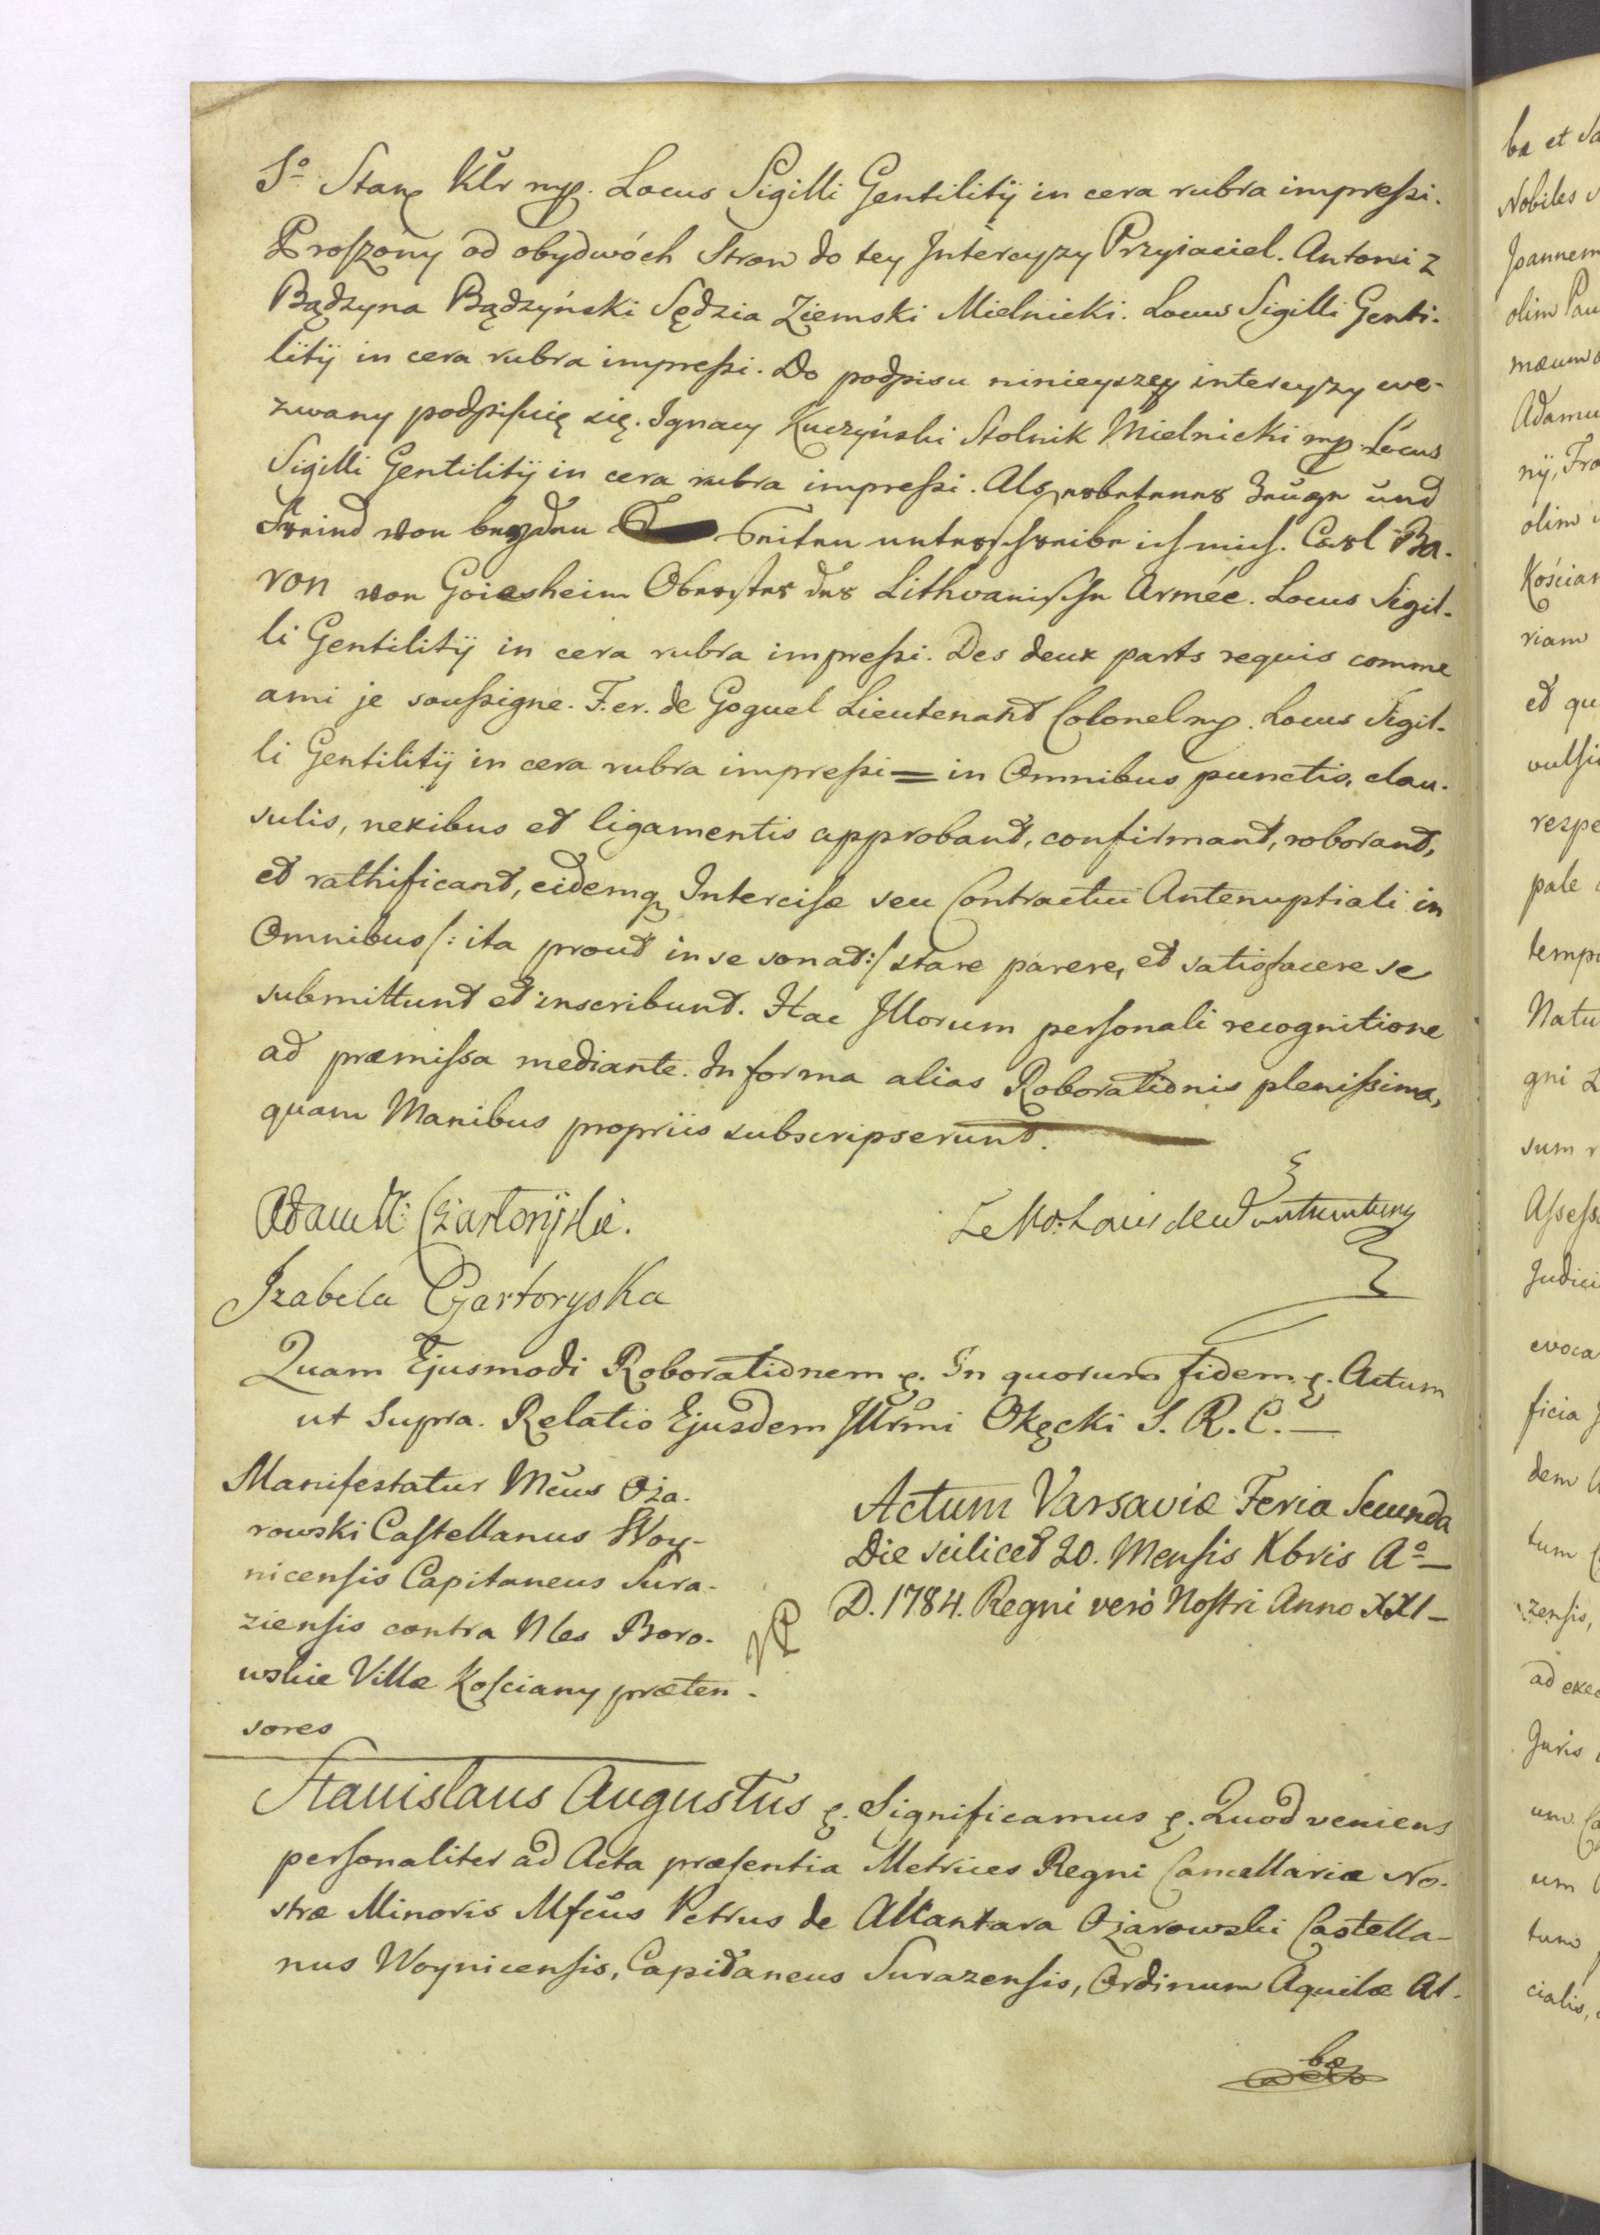 Sº Stanę Klr mp. Locus Sigilli Gentilitij in cera rubra impressi.
Proszony od obydwóch Stron do tey Intercyzy Przyiaciel. Antoni z
Bądzyna Bądzyński Sędzia Ziemski Mielnicki. Locus Sigilli Genti-
litij in cera rubra impressi. Do podpisu ninieyszey intercyzy we-
zwany podpisuię się. Ignacy Kuczyński Stolnik Mielnicki mp Locus
Sigilli Gentilitij in cera rubra impressi. Als erbetener Zeüge und
Freind von beyden Seiten unterschreibe ich mich. Carl Ba-
ron von Goiesheim Oberster der Lithvanische Armée. Locus Sigil-
li Gentilitij in cera rubra impressi. Des deux parts requis comme
ami je soussigne. F. er. de Goguel Lieutenant Colonel mp. Locus Sigil-
li Gentilitij in cera rubra impressi = in Omnibus punctis, clau-
sulis, nexibus et ligamentis approbant, confirmant, roborant,
et rathificant, eidemq Intercisæ seu Contractui Antenuptiali in
Omnibus /: ita prout in se sonat :/ stare parere, et satisfacere se
submittunt et inscribunt. Hac Illorum personali recognitione
ad præmissa mediante. In forma alias Roborationis plenissima,
quam Manibus propriis subscripserunt.
Adam Czartoryski.
Le Louis de
Izabela Czartoryska
Quam Ejusmodi Roborationem ę. In quorum fidem ę. Actum
ut Supra. Relatio Ejusdem Illrmi Okęcki S. R. C. —
Manifestatur Mcus Oża-
rowski Castellanus Woy-
nicensis Capitaneus Sura-
ziensis contra Nles Boro-
wskie Villæ Kosciany præten-
sores
Actum Varsaviæ Feria Secunda
Die scilicet 20. Mensis Xbris Aº —
D. 1784. Regni verò Nostri Anno XXI —
Stanislaus Augustus ę. Significamus ę. Quod veniens
personaliter ad Acta præsentia Metrices Regni Cancellariæ No-
stræ Minoris Mfcus Petrus de Alkantara Ożarowski Castella-
nus Woynicensis, Capitaneus Surazensis, Ordinum Aquilæ Al-
bæ